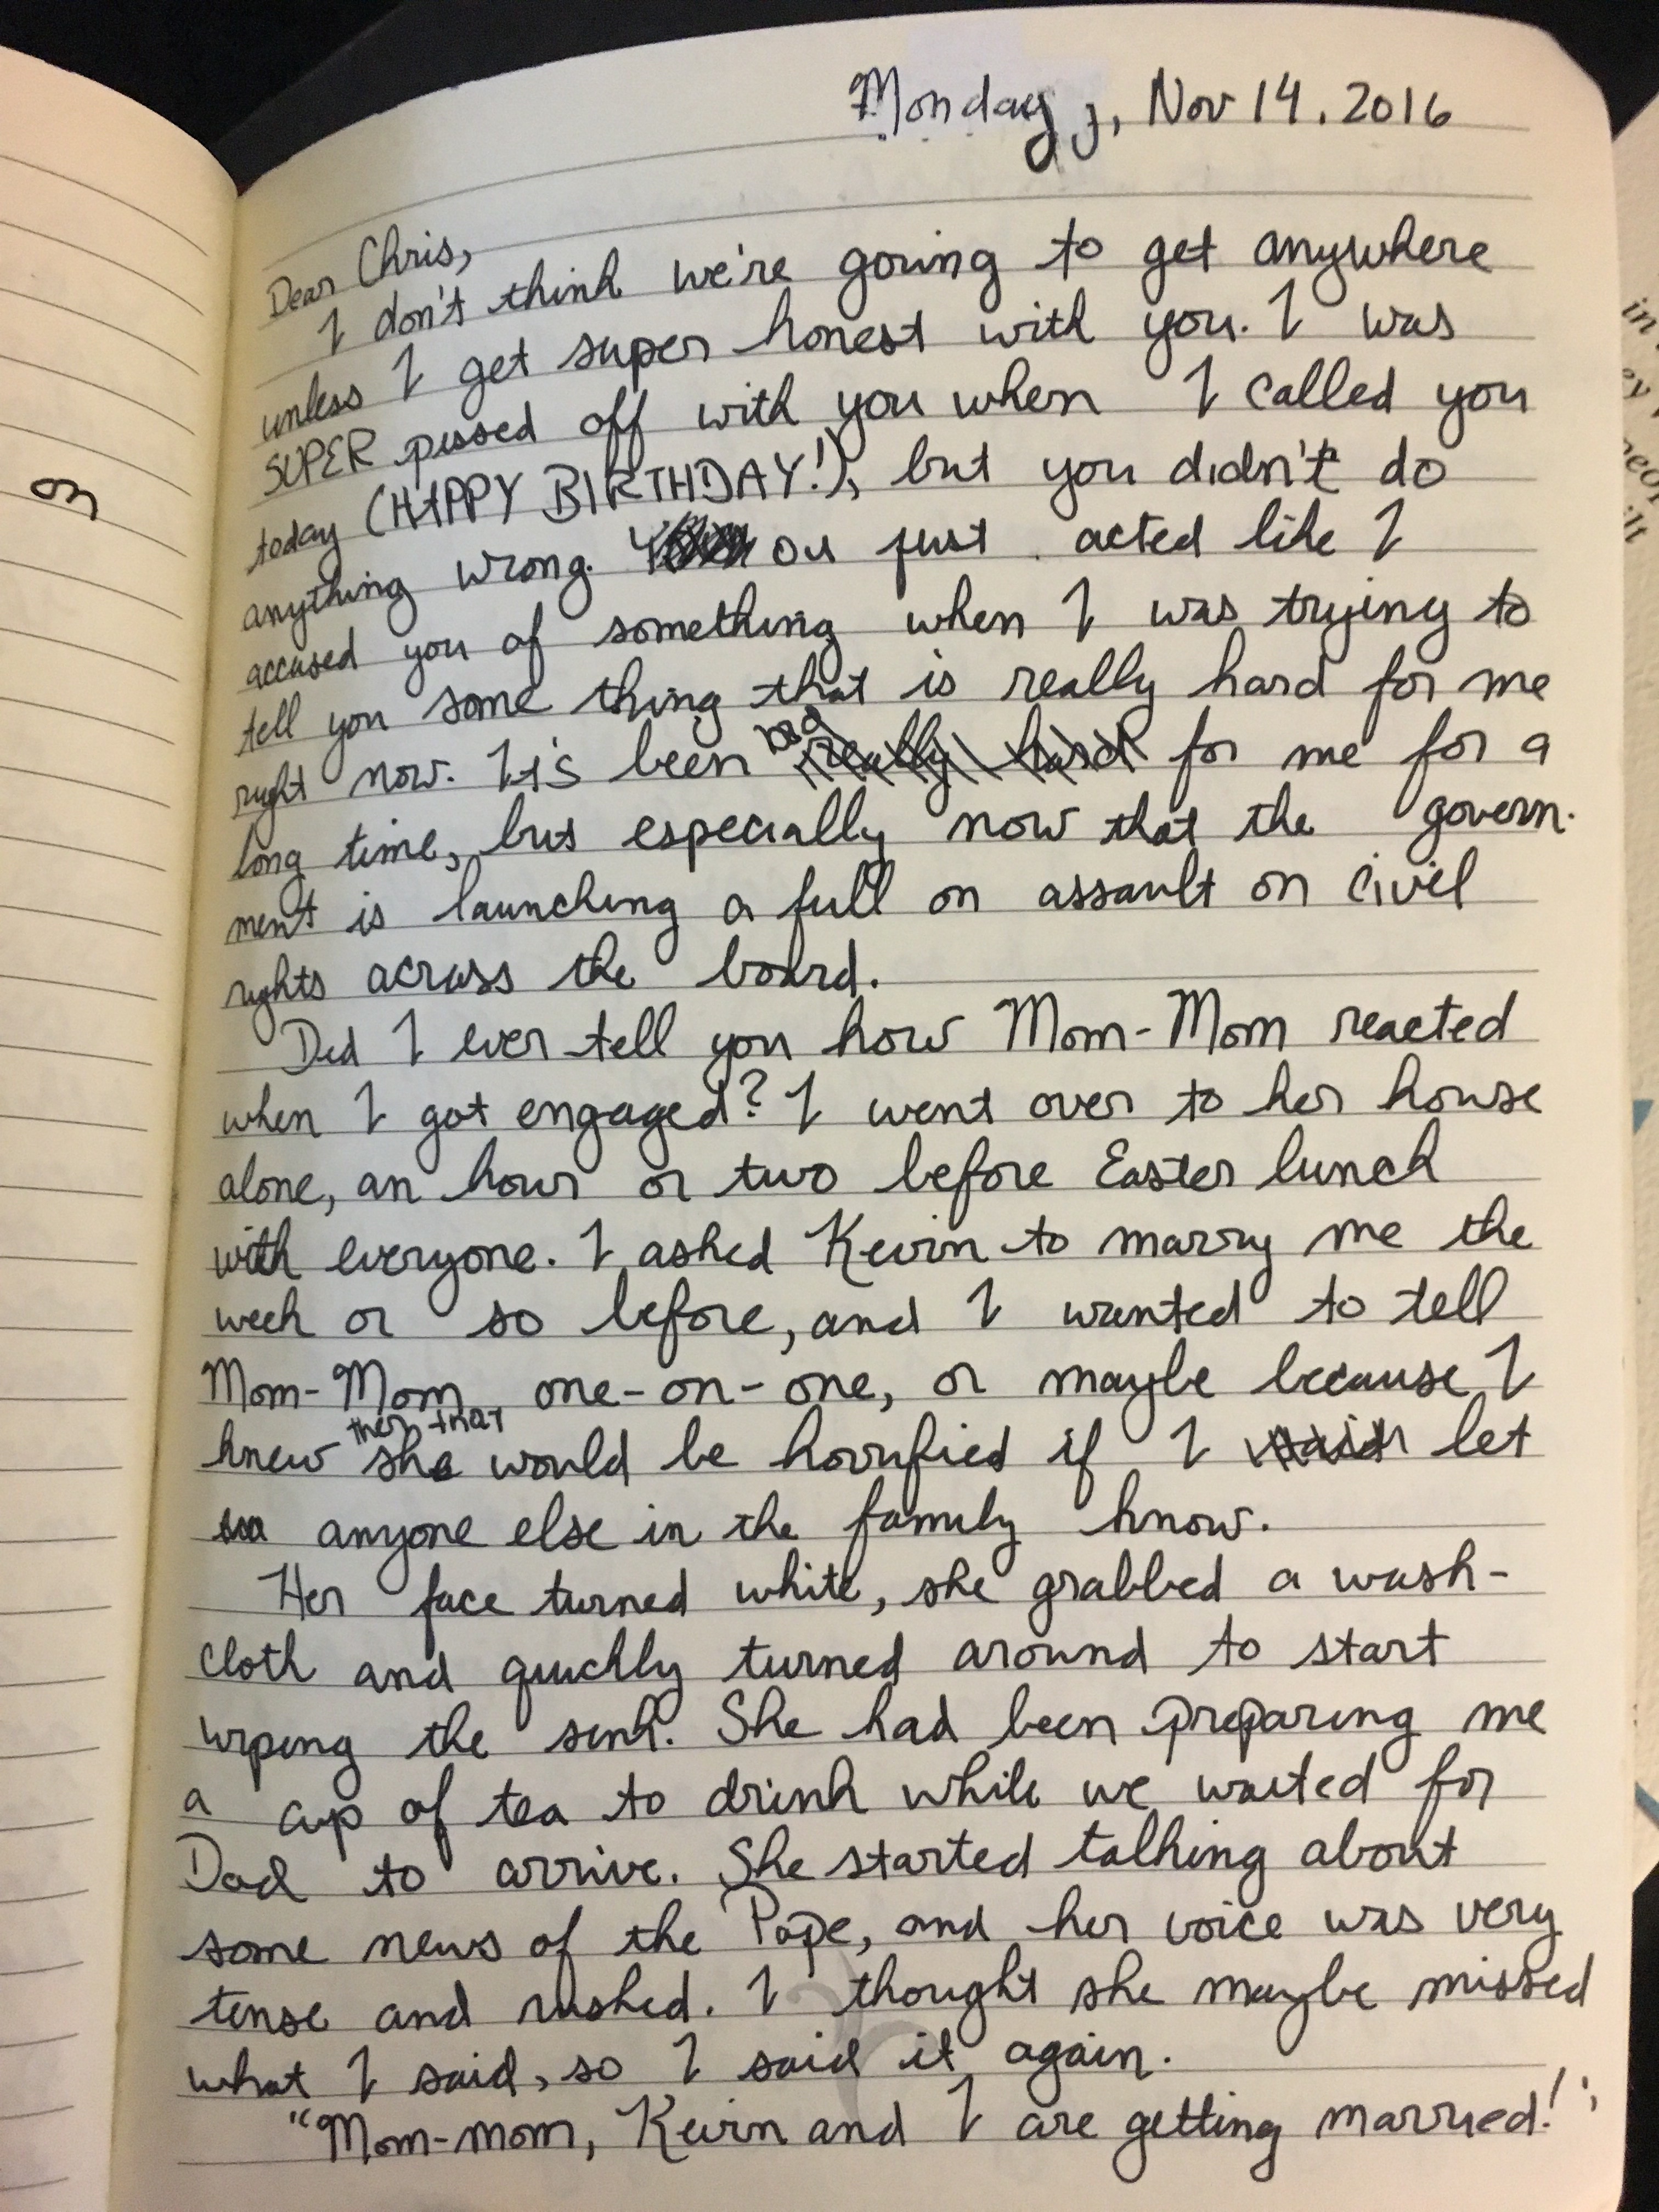 Monday, Nov 14. 2016
Dear Chris,
I don't think we're going to get anywhere
unless I get super honest with you. I was
SUPER pissed off with you when I called you
today (HAPPY BIRTHDAY!), but you didn't do
anything wrong. You just acted like I
accused you of something when I was trying to
tell you some thing that is really hard for me
right now. It's been bad really hard for me for a
long time, but especially now that the govern-
ment is launching a full on assault on civil
rights across the board.
Did I ever tell you how Mom-Mom reacted
when I got engaged? I went over to her house
alone, an hour or two before Easter lunch
with everyone. I asked Kevin to marry me the
week or so before, and I wanted to tell
Mom-Mom one-on-one, or maybe because I
knew then that she would be horrified if I said let
anyone else in the family know.
Her face turned white, she grabbed a wash-
cloth and quickly turned around to start
wiping the sink. She had been preparing me
a cup of tea to drink while we waited for
Dad to arrive. She started talking about
some news of the Pope, and her voice was very
tense and rushed. I thought she maybe missed
what I said, so I said it again.
"Mom-mom, Kevin and I are getting married!"
on
in